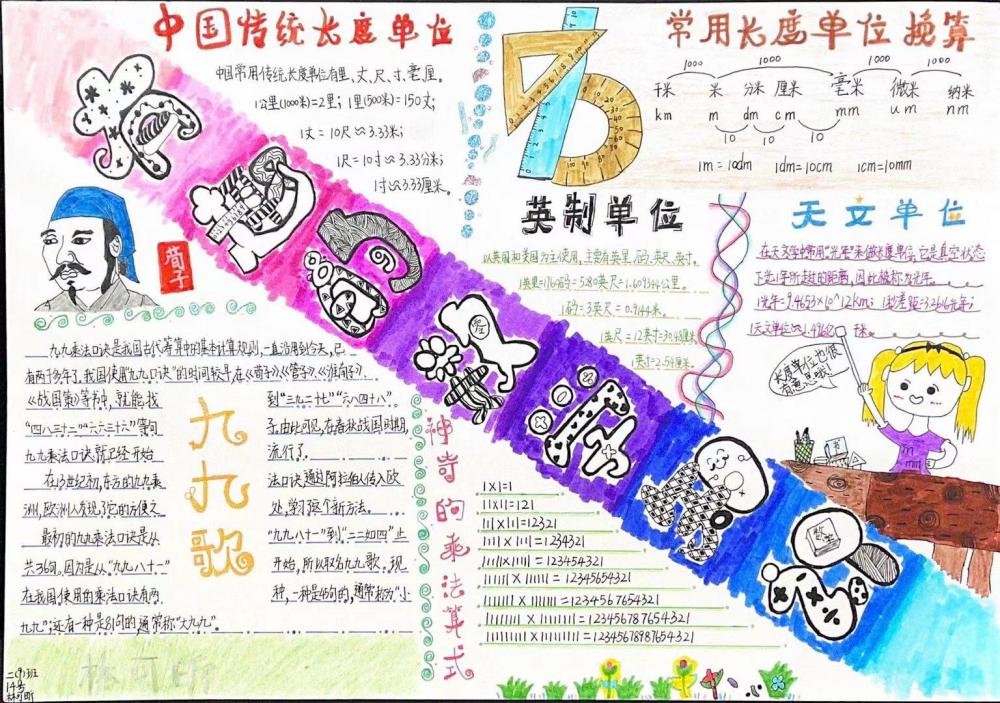 中国传统长度单位
中国常用传统长度单位有里、丈、尺、寸、毫、厘。
1公里(1000米)=2里；1里(500米)=150丈；
1丈=10尺≈3.33米；
1尺=10寸≈3.33分米；
1寸≈3.33厘米。
常用长度单位换算
1000 1000 1000 1000
千米 米 分米 厘米 毫米 微米 纳米
km m dm cm mm um nm
10 10 10
1m=10dm 1dm=10cm 1cm=10mm
荀子
英制单位
以英国和美国为主使用，主要有英里、码、英尺、英寸。
1英里=1760码=5280英尺=1.609344公里。
1码=3英尺=0.9144米。
1英尺=12英寸=30.48厘米
1英寸=2.54厘米。
天文单位
在天文学中常用"光年"来做长度单位，它是真空状态
下光1年所走的距离，因此被称为光年。
1光年=9.4653×10^12km；1秒差距=3.2616光年；
1天文单位≈1.496亿千米。
长度单位也很
有意思哦!
m
九九乘法口诀是我国古代筹算中的基本计算规则，一直沿用到今天，已
有两千多年了。我国使用"九九口诀"的时间较早，在《荀子》《管子》《淮南子》、
《战国策》等书中，就能找
"四八三十二""六六三十六"等句
九九乘法口诀就已经开始
在13世纪初，东方的九九乘
洲，欧洲人发现了它的方便之
最初的九九乘法口诀是从
共36句。因为是从"九九八十一"
在我国使用的乘法口诀有两
九九"；还有一种是81句的，通常称"大九九"。
九九歌
到"三九二十七""六八四十八"、
子，由此可见，在春秋战国时期，
流行了。
法口诀通过阿拉伯人传入欧
处，学习这个新方法。
"九九八十一"到"二二如四"止
开始，所以取名九九歌。现
种，一种是45句的，通常称为"小
神奇的乘法算式
1×1=1
11×11=121
111×111=12321
1111×1111=1234321
11111×11111=123454321
111111×111111=12345654321
1111111×1111111=1234567654321
11111111×11111111=123456787654321
111111111×111111111=12345678987654321
数学
二(9)班
14号